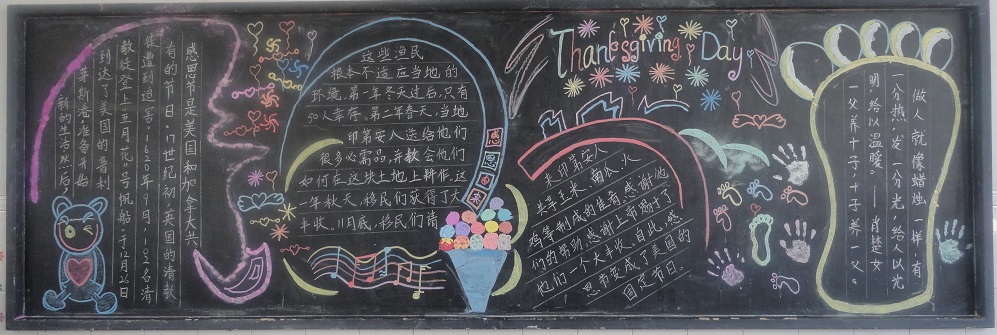 感恩节是美国和加拿大共
有的节日,17世纪初,英国的清教
徒遭到迫害。1620年9月,102名清
教徒登上五月花"号帆船,于12月26日
到达了美国的普利
茅斯港准备开始
新的生活然,后
这些渔民
根本不适应当地的
环境,第一年冬天过后,只有
50人幸存。第二年春天,当地
印第安人送给他们
很多必需品,并教会他们
如何在这块土地上耕作,这
一年秋天,移民们获得了大
丰收。11月底,移民们请
感
恩
Thanksgiving Day
来印第安人
共享玉米、南瓜、火
鸡等制成的佳肴,感谢他
们的帮助,感谢上帝赐予了
他们一个大丰收。自此,感
恩节变成了美国的
固定节日。
做人就像蜡烛一样,有
一分热,发一分光,给人以光
明,给以温暖。——肖楚女
一父养十子,十子养一父。